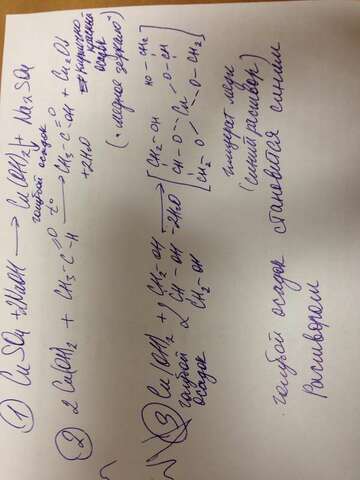 ① CuSO₄ + 2NaOH → Cu(OH)₂↓ + Na₂SO₄
голубой осадок
② 2 Cu(OH)₂ + CH₃-C-H =O t° → CH₃-C-OH =O + Cu₂O↓
+2H₂O
кирпично-
красный
осадок
("медное зеркало")
③ Cu(OH)₂ + 2 CH₂-OH CH-OH CH₂-OH → -2H₂O [CH₂-OH CH-O CH₂-O Cu HO-CH₂ O-CH O-CH₂]
голубой
осадок
глицерат меди
(синий раствор)
голубой осадок становится синим
раствором